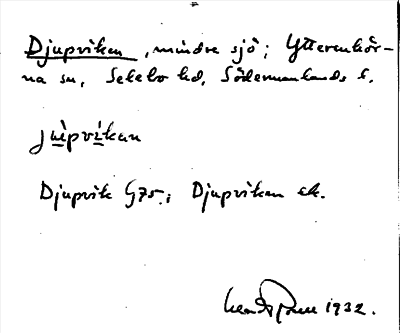 Djupviken, mindre sjö; Ytterenhör-
na sn, Selebo hd, Södermanlands l.
jùpvikan
Djupvik G75; Djupviken ek.
1932.